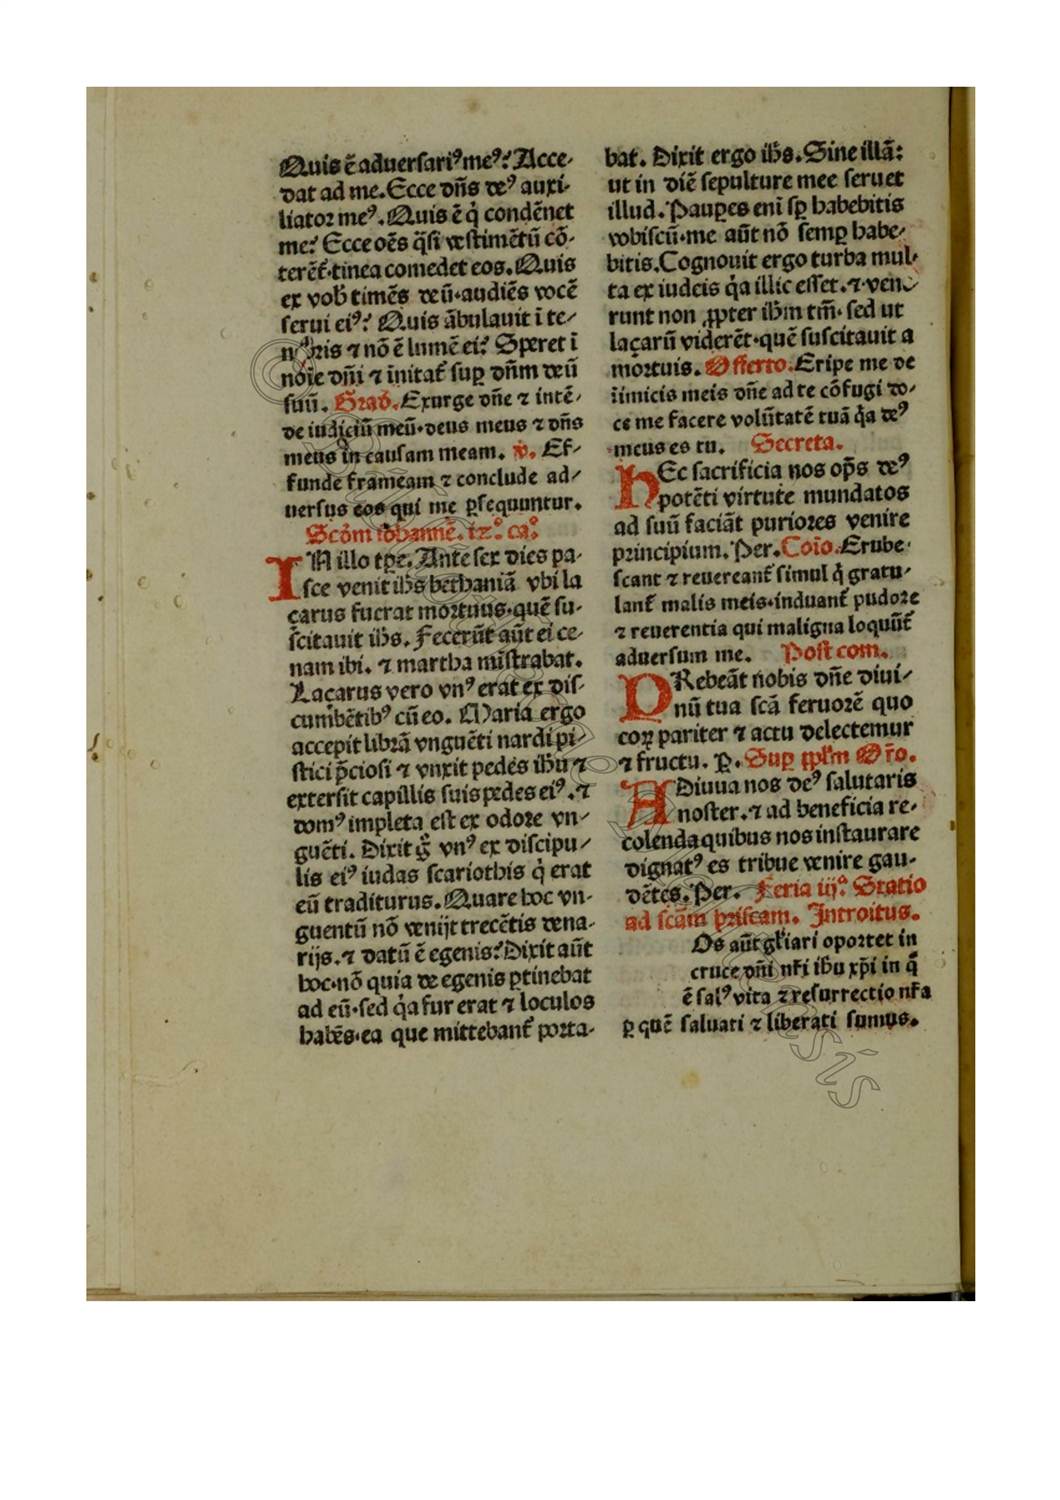 Quis ē aduersariꝰ meꝰ? Acce-
dat ad me. Ecce dn̄s deꝰ auxi-
liator meꝰ. Quis ē q̇ condēnet
me? Ecce oēs q̄si vestimētū cō-
terēt᷑. tinea comedet eos. Quis
ex vob̄ timēs deū. audiēs vocē
serui eiꝰ? Quis ābulauit ī te-
nebris ⁊ nō ē lumē ei? Speret ī
noīe dn̄i ⁊ īnitat᷑ suꝑ dn̄m deū
suū. Grad̄. Exurge dn̄e ⁊ intē-
de iudiciū meū. deus meus ⁊ dn̄s
meus in causam meam. v̄. Ef-
funde frameam ⁊ conclude ad-
uersus eos qui me ꝑsequuntur.
Scd̓m iohannē. iz.° ca.°
IN illo tꝑe. Ante sex dies pa-
sce venit ih̄s bethaniā vbi la
çarus fuerat mortuus. quē su-
scitauit ih̄s. Fecerūt aūt ei ce-
nam ibi. ⁊ martha mīstrabat.
Laçarus vero vnꝰ erat ex dis-
cumbētibꝰ cū eo. Maria ergo
accepit librā vnguēti nardi pi-
stici p̄ciosi ⁊ vnxit pedes ih̄u ⁊
extersit capillis suis pedes eiꝰ. ⁊
domꝰ impleta est ex odore vn-
guēti. Dixit g̊ vnꝰ ex discipu-
lis eiꝰ iudas scariothis q̇ erat
eū traditurus. Quare hoc vn-
guentū nō venijt trecētis dena-
rijs. ⁊ datū ē egenis? Dixit aūt
hoc. nō quia de egenis ꝑtinebat
ad eū. sed q̇a fur erat ⁊ loculos
habēs. ea que mittebant᷑ porta-
bat. Dixit ergo ih̄s. Sine illā:
ut in diē sepulture mee seruet
illud. Pauꝑes enī sꝑ habebitis
vobiscū. me aūt nō semꝑ habe-
bitis. Cognouit ergo turba mul-
ta ex iudeis q̇a illic esset. ⁊ vene-
runt non ꝓpter ih̄m tm̄. sed ut
laçarū viderēt. quē suscitauit a
mortuis. Offerto. Eripe me de
īimicis meis dn̄e ad te cōfugi do-
ce me facere volūtatē tuā q̇a deꝰ
meus es tu. Secreta.
HEc sacrificia nos op̄s deꝰ
potēti virtute mundatos
ad suū faciāt puriores venire
principium. Per. Coīo. Erube-
scant ⁊ reuereant᷑ simul q̇ gratu-
lant᷑ malis meis. induant᷑ pudore
⁊ reuerentia qui maligna loquūt᷑
aduersum me. Post com.
PRebeāt nobis dn̄e diui-
nū tua scā feruorē quo
eoꝝ pariter ⁊ actu delectemur
⁊ fructu. ꝑ. Suꝑ ppl̄m Or̄o.
ADiuua nos deꝰ salutaris
noster. ⁊ ad beneficia re-
colenda quibus nos instaurare
dignatꝰ es tribue venire gau-
dētes. Per. Feria iij.ª Statio
ad scām priscam. Introitus.
Os aūt gl̄iari oportet in
cruce dn̄i nr̄i ih̄u xp̄i in q̄
ē salꝰ vita ⁊ resurrectio nr̄a
ꝑ quē saluati ⁊ liberati sumus.